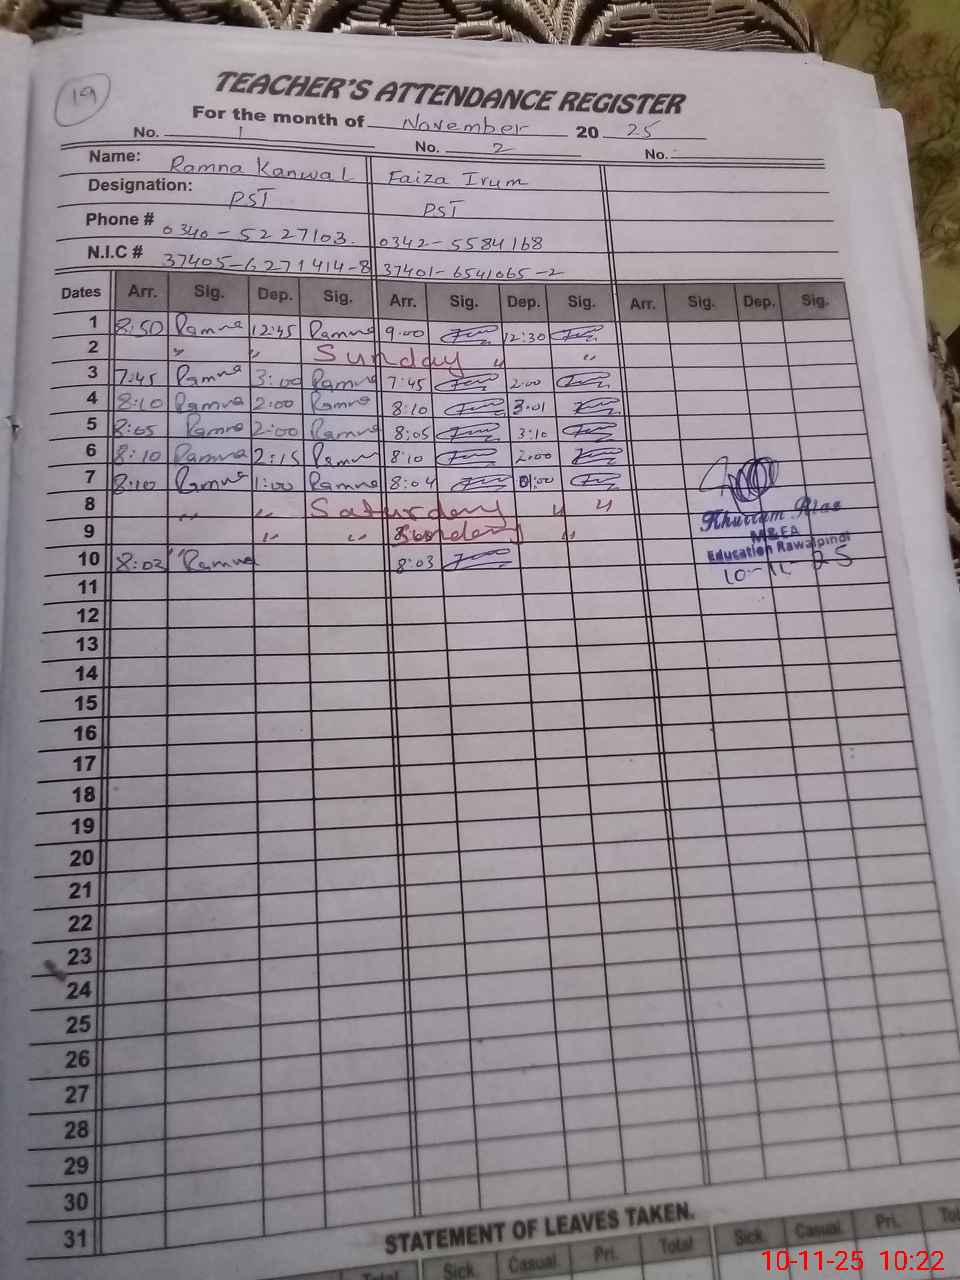 19
TEACHER'S ATTENDANCE REGISTER
For the month of November 20 25
No. 1 No. 2 No.
Name: Ramna Kanwal Faiza Irum
Designation: PST PST
Phone # 0340-5227103. 0342-5584168
N.I.C # 37405-6271414-8 37401-6541065-2
Dates Arr. Sig. Dep. Sig. Arr. Sig. Dep. Sig. Arr. Sig. Dep. Sig.
1 8:50 Ramna 12:45 Ramna 9:00 12:30
2 " " Sunday " "
3 7:45 Ramna 3:00 Ramna 7:45 2:00
4 8:10 Ramna 2:00 Ramna 8:10 3:01
5 8:05 Ramna 2:00 Ramna 8:05 3:10
6 8:10 Ramna 2:15 Ramna 8:10 2:00
7 8:10 Ramna 1:00 Ramna 8:04 01:00
8 " " Saturday " "
9 " " Sunday "
10 8:03 Ramna 8:03
Khurram Riaz
M&EA
Education Rawalpindi
10-11-25
11
12
13
14
15
16
17
18
19
20
21
22
23
24
25
26
27
28
29
30
31
STATEMENT OF LEAVES TAKEN.
Total Sick. Casual. Pri. Total Sick. Casual. Pri.
10-11-25 10:22